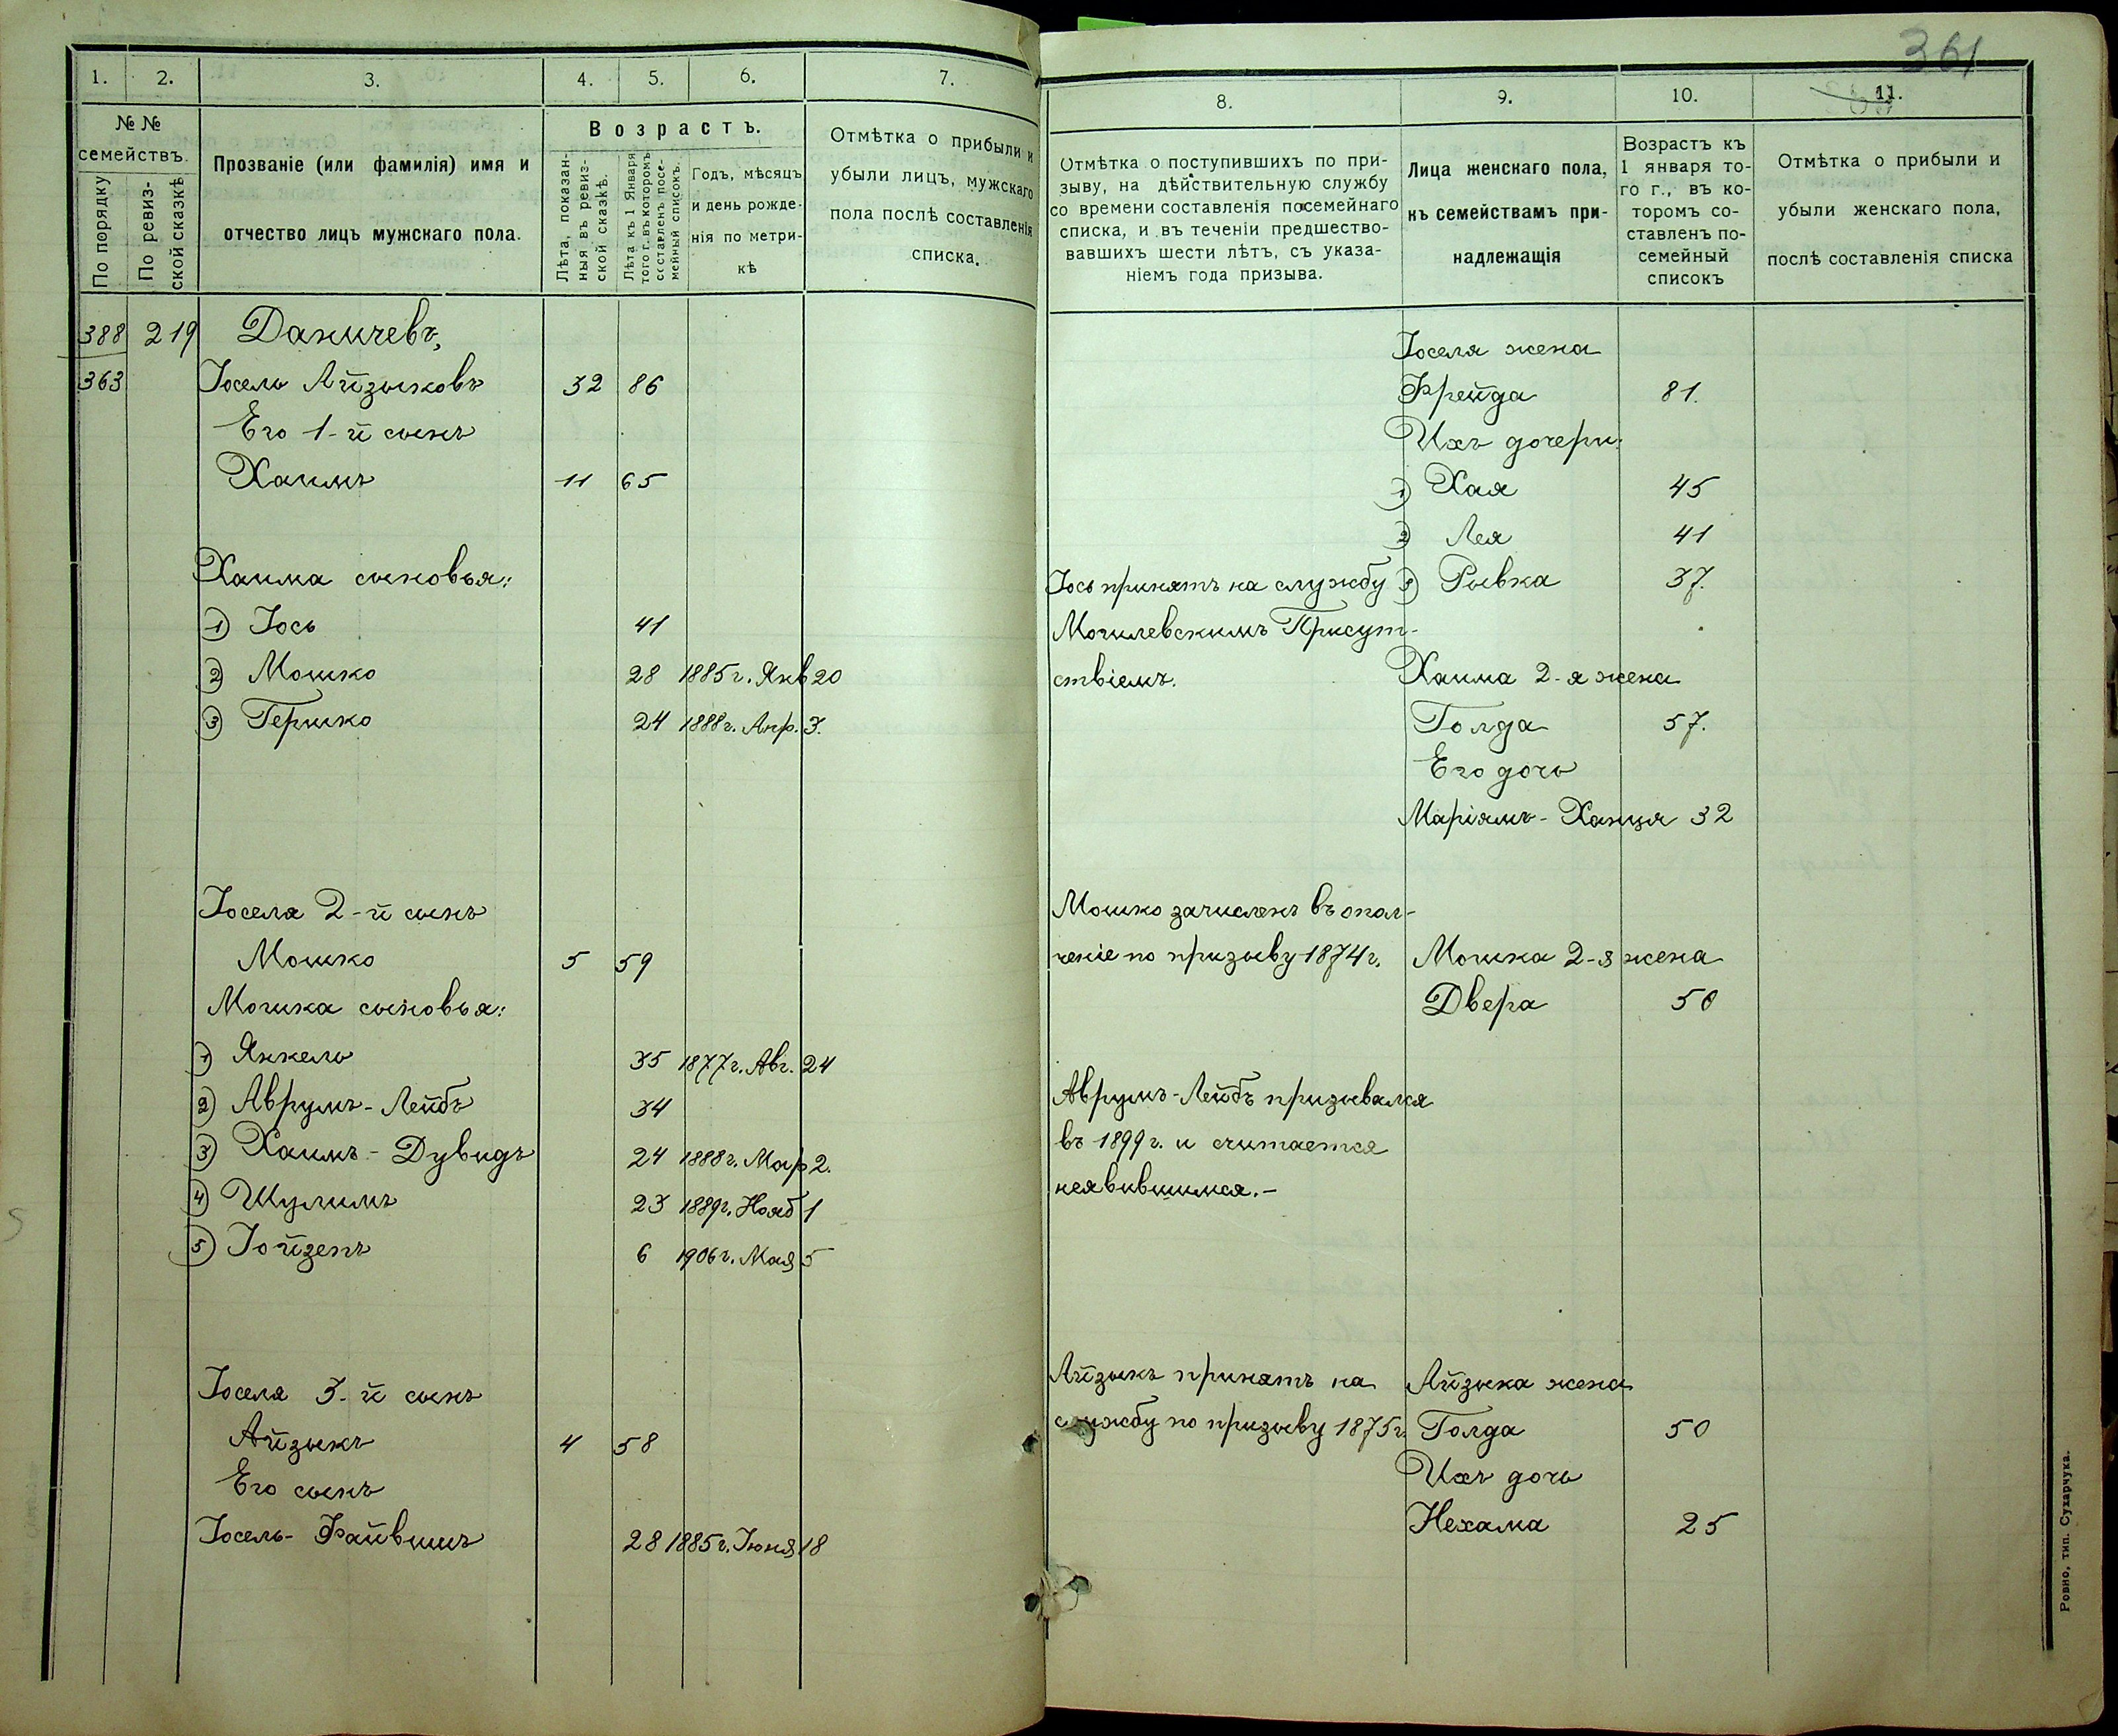 361
1. 2. 3. 4. 5. 6. 7.
№ № семействъ.
По порядку
По ревизской сказкѣ
Прозваніе (или фамилія) имя и
отчество лицъ мужскаго пола.
Возрастъ.
Лѣта, показанныя въ ревизской сказкѣ.
Лѣта къ 1 Января того г. въ которомъ составленъ посемейный списокъ.
Годъ, мѣсяцъ
и день рожде-
нія по метри-
кѣ
Отмѣтка о прибыли и
убыли лицъ, мужскаго
пола послѣ составленія
списка.
388 219 Даничевъ,
363 Іосель Айзыковъ 32 86
Его 1-й сынъ
Хаимъ 11 65
Хаима сыновья:
1) Іось 41
2) Мошко 28 1885г. Янв 20
3) Гершко 24 1888г. Апр. 3.
Іоселя 2-й сынъ
Мошко 5 59
Мошка сыновья:
1) Янкель 35 1877г. Авг. 24
2) Аврумъ-Лейбъ 34
3) Хаимъ-Дувидъ 24 1888г. Мар 2.
4) Шулимъ 23 1889г. Нояб 1
5) Іойзепъ 6 1906г. Мая 5
Іоселя 3-й сынъ
Айзыкъ 4 58
Его сынъ
Іосель-Файвишъ 28 1885г. Іюня 18
8. 9. 10. 11.
Отмѣтка о поступившихъ по при-
зыву, на дѣйствительную службу
со времени составленія посемейнаго
списка, и въ теченіи предшество-
вавшихъ шести лѣтъ, съ указа-
ніемъ года призыва.
Лица женскаго пола,
къ семействамъ при-
надлежащія
Возрастъ къ
1 января то-
го г., въ ко-
торомъ со-
ставленъ по-
семейный
списокъ
Отмѣтка о прибыли и
убыли женскаго пола,
послѣ составленія списка
Іоселя жена
Фрейда 81.
Ихъ дочери:
1) Хая 45
2) Лея 41
Іось принятъ на службу 3) Рывка 37.
Могилевскимъ Присут-
ствіемъ. Хаима 2-я жена
Голда 57.
Его дочь
Маріямъ-Ханця 32
Мошко зачисленъ въ опол-
ченіе по призыву 1874г. Мошка 2-я жена
Двера 50
Аврумъ-Лейбъ призывался
въ 1899г. и считается
неявившимся.-
Айзыкъ принятъ на Айзыка жена
службу по призыву 1875г. Голда 50
Ихъ дочь
Нехама 25
Ровно, тип. Сухарчука.